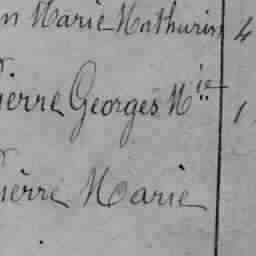 n Marie Mathurin 4
ierre Georges M ie 1
ierre Marie